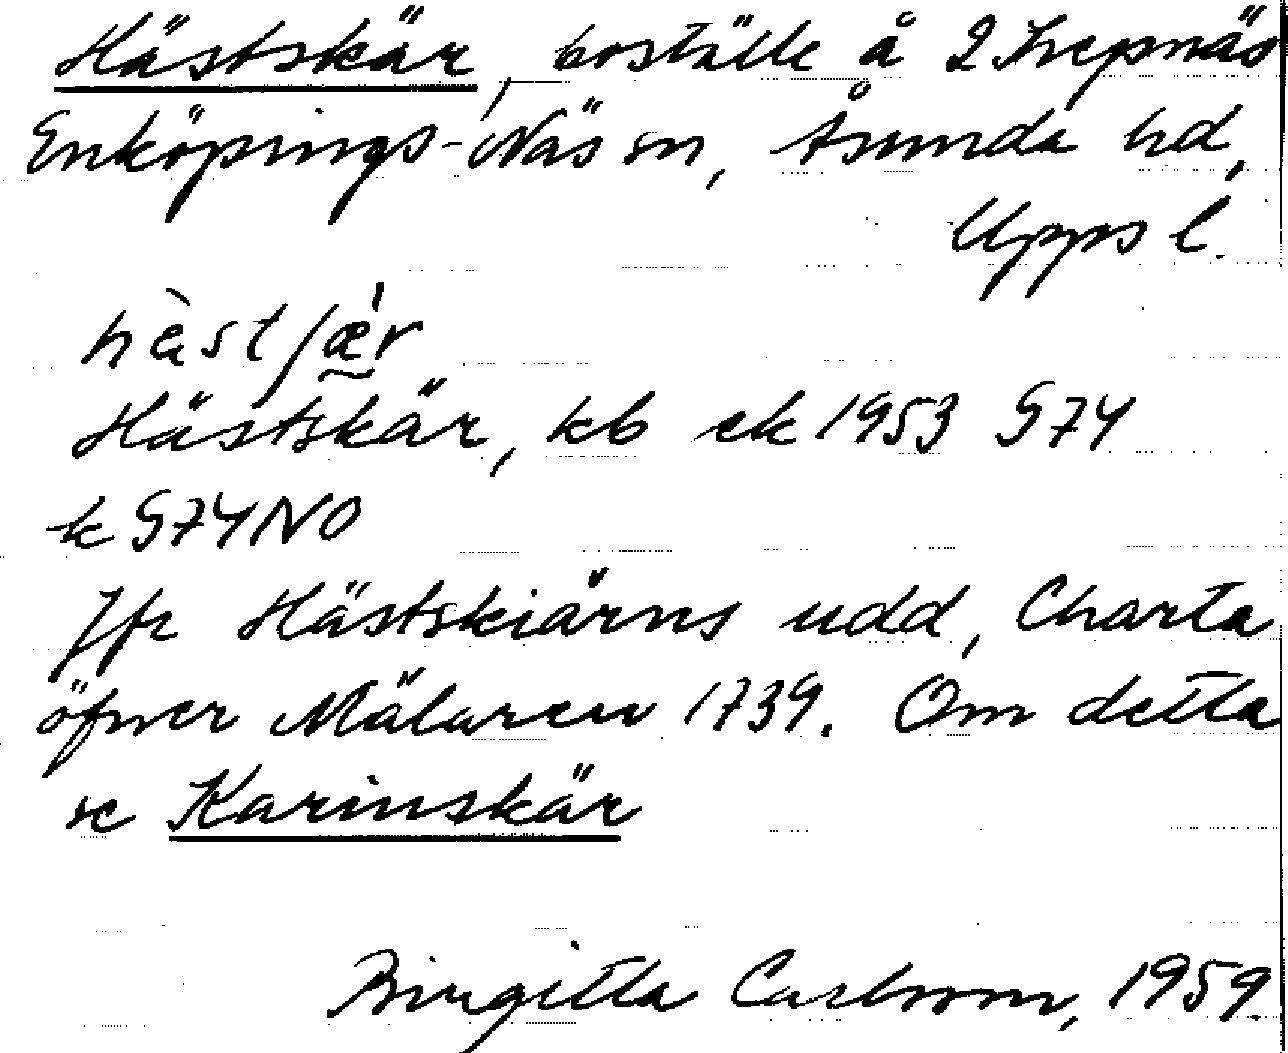 Hästskär, boställe å 2 Skepnäs
Enköpings-Näs sn, Åsunda hd,
Upps l.
hàstʃæ̰̀r
Hästskär, kb ek 1953 574
k 574NO
Jfr Hästskiärns udd, Charta
öfwer Mälaren 1739. Om detta
se Karinskär
Birgitta Carlsson, 1959.